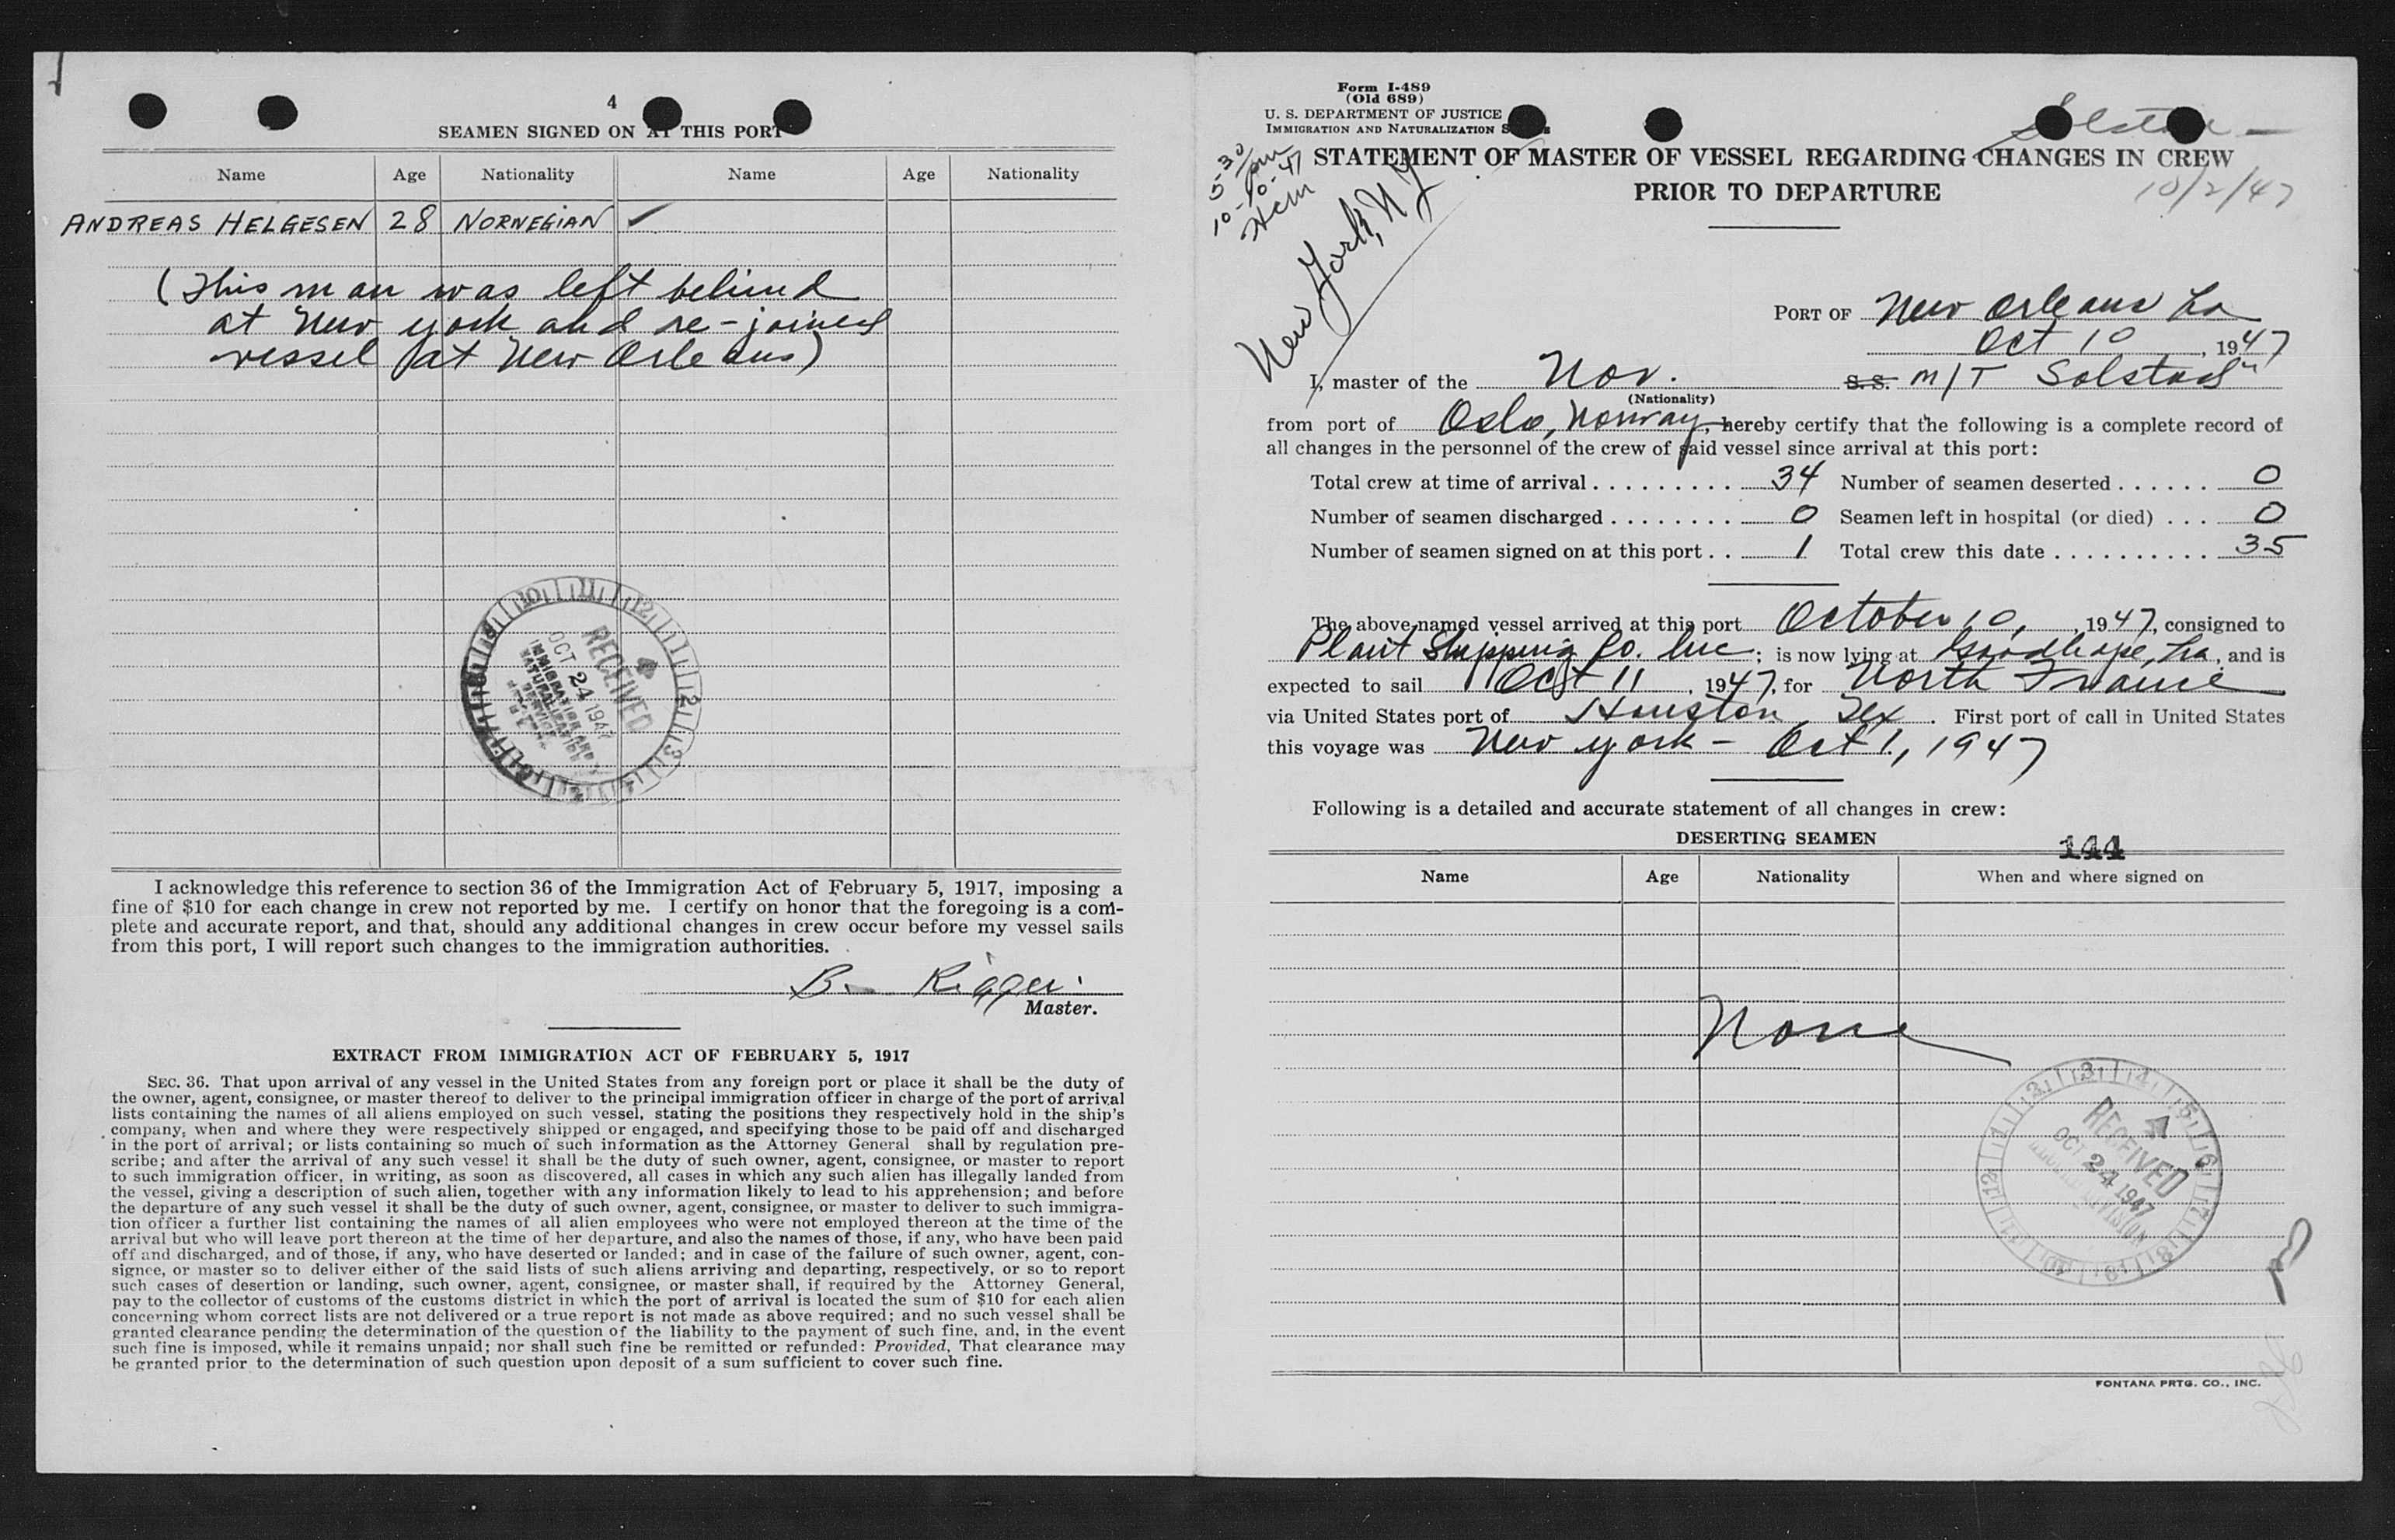 4
SEAMEN SIGNED ON AT THIS PORT
Name Age Nationality Name Age Nationality
ANDREAS HELGESEN 28 NORWEGIAN ✓
(This man was left behind
at New York and re-joined
vessel at New Orleans)
RECEIVED
OCT 24 1947
IMMIGRATION AND
NATURALIZATION
SERVICE
I acknowledge this reference to section 36 of the Immigration Act of February 5, 1917, imposing a
fine of $10 for each change in crew not reported by me. I certify on honor that the foregoing is a com-
plete and accurate report, and that, should any additional changes in crew occur before my vessel sails
from this port, I will report such changes to the immigration authorities.
B.
Master.
EXTRACT FROM IMMIGRATION ACT OF FEBRUARY 5, 1917
SEC. 36. That upon arrival of any vessel in the United States from any foreign port or place it shall be the duty of
the owner, agent, consignee, or master thereof to deliver to the principal immigration officer in charge of the port of arrival
lists containing the names of all aliens employed on such vessel, stating the positions they respectively hold in the ship's
company, when and where they were respectively shipped or engaged, and specifying those to be paid off and discharged
in the port of arrival; or lists containing so much of such information as the Attorney General shall by regulation pre-
scribe; and after the arrival of any such vessel it shall be the duty of such owner, agent, consignee, or master to report
to such immigration officer, in writing, as soon as discovered, all cases in which any such alien has illegally landed from
the vessel, giving a description of such alien, together with any information likely to lead to his apprehension; and before
the departure of any such vessel it shall be the duty of such owner, agent, consignee, or master to deliver to such immigra-
tion officer a further list containing the names of all alien employees who were not employed thereon at the time of the
arrival but who will leave port thereon at the time of her departure, and also the names of those, if any, who have been paid
off and discharged, and of those, if any, who have deserted or landed; and in case of the failure of such owner, agent, con-
signee, or master so to deliver either of the said lists of such aliens arriving and departing, respectively, or so to report
such cases of desertion or landing, such owner, agent, consignee, or master shall, if required by the Attorney General,
pay to the collector of customs of the customs district in which the port of arrival is located the sum of $10 for each alien
concerning whom correct lists are not delivered or a true report is not made as above required; and no such vessel shall be
granted clearance pending the determination of the question of the liability to the payment of such fine, and, in the event
such fine is imposed, while it remains unpaid; nor shall such fine be remitted or refunded: Provided, That clearance may
be granted prior to the determination of such question upon deposit of a sum sufficient to cover such fine.
Form I-489
(Old 689)
U. S. DEPARTMENT OF JUSTICE
IMMIGRATION AND NATURALIZATION
STATEMENT OF MASTER OF VESSEL REGARDING CHANGES IN CREW
PRIOR TO DEPARTURE
10/2/47
5-30 pm
10-10-47
New York, NY
PORT OF New Orleans La
Oct 10, 1947
I, master of the Nor. S.S. M/T Solstad"
(Nationality)
from port of Oslo, Norway, hereby certify that the following is a complete record of
all changes in the personnel of the crew of said vessel since arrival at this port:
Total crew at time of arrival . . . . . . . . . 34 Number of seamen deserted . . . . . . 0
Number of seamen discharged . . . . . . . . 0 Seamen left in hospital (or died) . . . 0
Number of seamen signed on at this port . . 1 Total crew this date . . . . . . . . . . 35
The above-named vessel arrived at this port October 10, 1947, consigned to
Plant Shipping Co. Inc; is now lying at Goodhope, La, and is
expected to sail Oct 11, 1947, for North France
via United States port of Houston, Tex. First port of call in United States
this voyage was New York - Oct 1, 1947
Following is a detailed and accurate statement of all changes in crew:
DESERTING SEAMEN
144
Name Age Nationality When and where signed on
None
RECEIVED
OCT 24 1947
DIVISION
FONTANA PRTG. CO., INC.